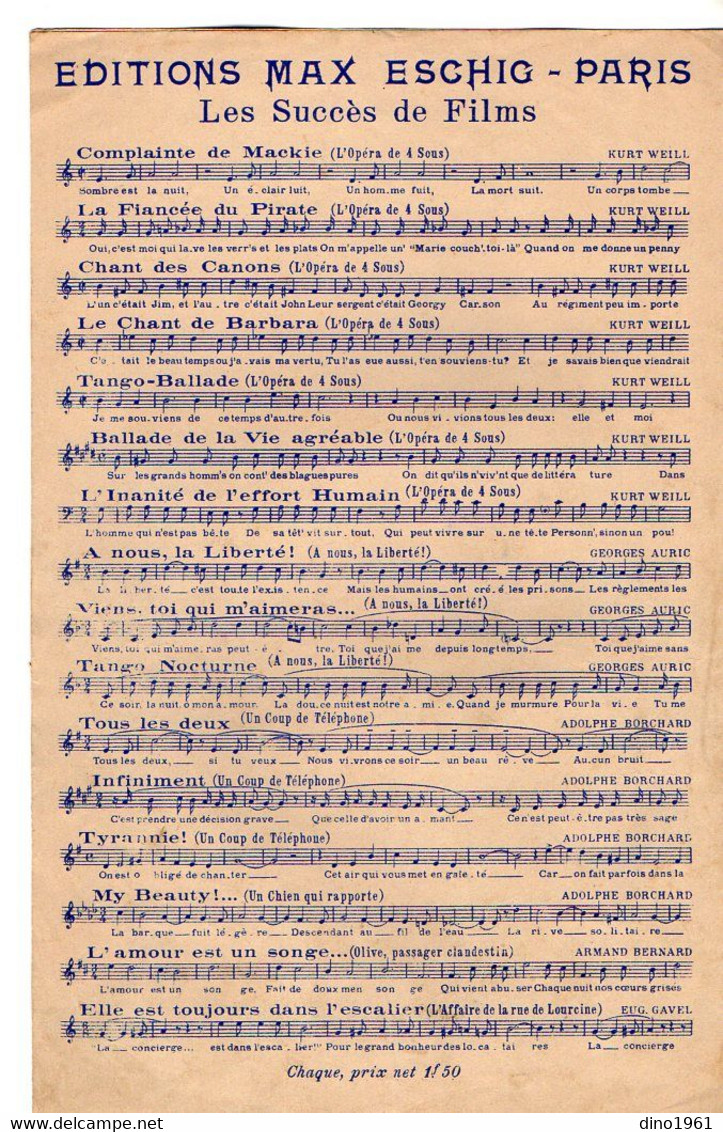 EDITIONS MAX ESCHIG - PARIS
Les Succès de Films
Complainte de Mackie (L'Opéra de 4 Sous) KURT WEILL
Sombre est la nuit, Un é.clair luit, Un hom.me fuit, La mort suit. Un corps tombe
La Fiancée du Pirate (L'Opéra de 4 Sous) KURT WEILL
Oui, c'est moi qui la.ve les verr's et les plats On m'appelle un' "Marie couch'.toi-là" Quand on me donne un penny
Chant des Canons (L'Opéra de 4 Sous) KURT WEILL
L'un c'était Jim, et l'au.tre c'était John Leur sergent c'était Georgy Car.son Au régiment peu im.porte
Le Chant de Barbara (L'Opéra de 4 Sous) KURT WEILL
C'é.tait le beau temps ou j'a.vais ma vertu, Tu l'as eue aussi, t'en souviens-tu? Et je savais bien que viendrait
Tango-Ballade (L'Opéra de 4 Sous) KURT WEILL
Je me sou.viens de ce temps d'au.tre.fois Ou nous vi.vions tous les deux: elle et moi
Ballade de la Vie agréable (L'Opéra de 4 Sous) KURT WEILL
Sur les grands homm's on cont' des blagues pures On dit qu'ils n'viv'nt que de littéra ture Dans
L'Inanité de l'effort Humain (L'Opéra de 4 Sous) KURT WEILL
L'homme qui n'est pas bé.te De sa têt' vit sur.tout, Qui peut vivre sur u.ne té.te Personn', sinon un pou!
A nous, la Liberté! (A nous, la Liberté!) GEORGES AURIC
La li.ber.té c'est tou.te l'ex.is.ten.ce Mais les humains ont cré.é les pri.sons Les règlements les
Viens. toi qui m'aimeras... (A nous, la Liberté!) GEORGES AURIC
Viens, toi qui m'aime.ras peut-é.tre, Toi que j'ai me depuis longtemps, Toi que j'aime sans
Tango Nocturne (A nous, la Liberté!) GEORGES AURIC
Ce soir, la nuit, o mon a.mour. La dou.ce nuit est notre a.mi.e. Quand je murmure Pour la vi.e Tu me
Tous les deux (Un Coup de Téléphone) ADOLPHE BORCHARD
Tous les deux, si tu veux Nous vi.vrons ce soir un beau ré.ve Au.cun bruit
Infiniment (Un Coup de Téléphone) ADOLPHE BORCHARD
C'est prendre une décision grave Que celle d'avoir un a.mant Ce n'est peut-être pas très sage
Tyrannie! (Un Coup de Téléphone) ADOLPHE BORCHARD
On est o bligé de chan.ter Cet air qui vous met en gaie.té Car on fait parfois dans la
My Beauty!... (Un Chien qui rapporte) ADOLPHE BORCHARD
La bar.que fuit lé.gè.re Descendant au fil de l'eau La ri.ve so.li.tai.re
L'amour est un songe...(Olive, passager clandestin) ARMAND BERNARD
L'amour est un son ge. Fait de doux men son ge Qui vient abu.ser Chaque nuit nos cœurs grisés
Elle est toujours dans l'escalier (L'Affaire de la rue de Lourcine) EUG. GAVEL
"La concierge... est dans l'esca.lier!" Pour le grand bonheur des lo.ca.tai res La concierge
Chaque, prix net 1f 50
dino1961